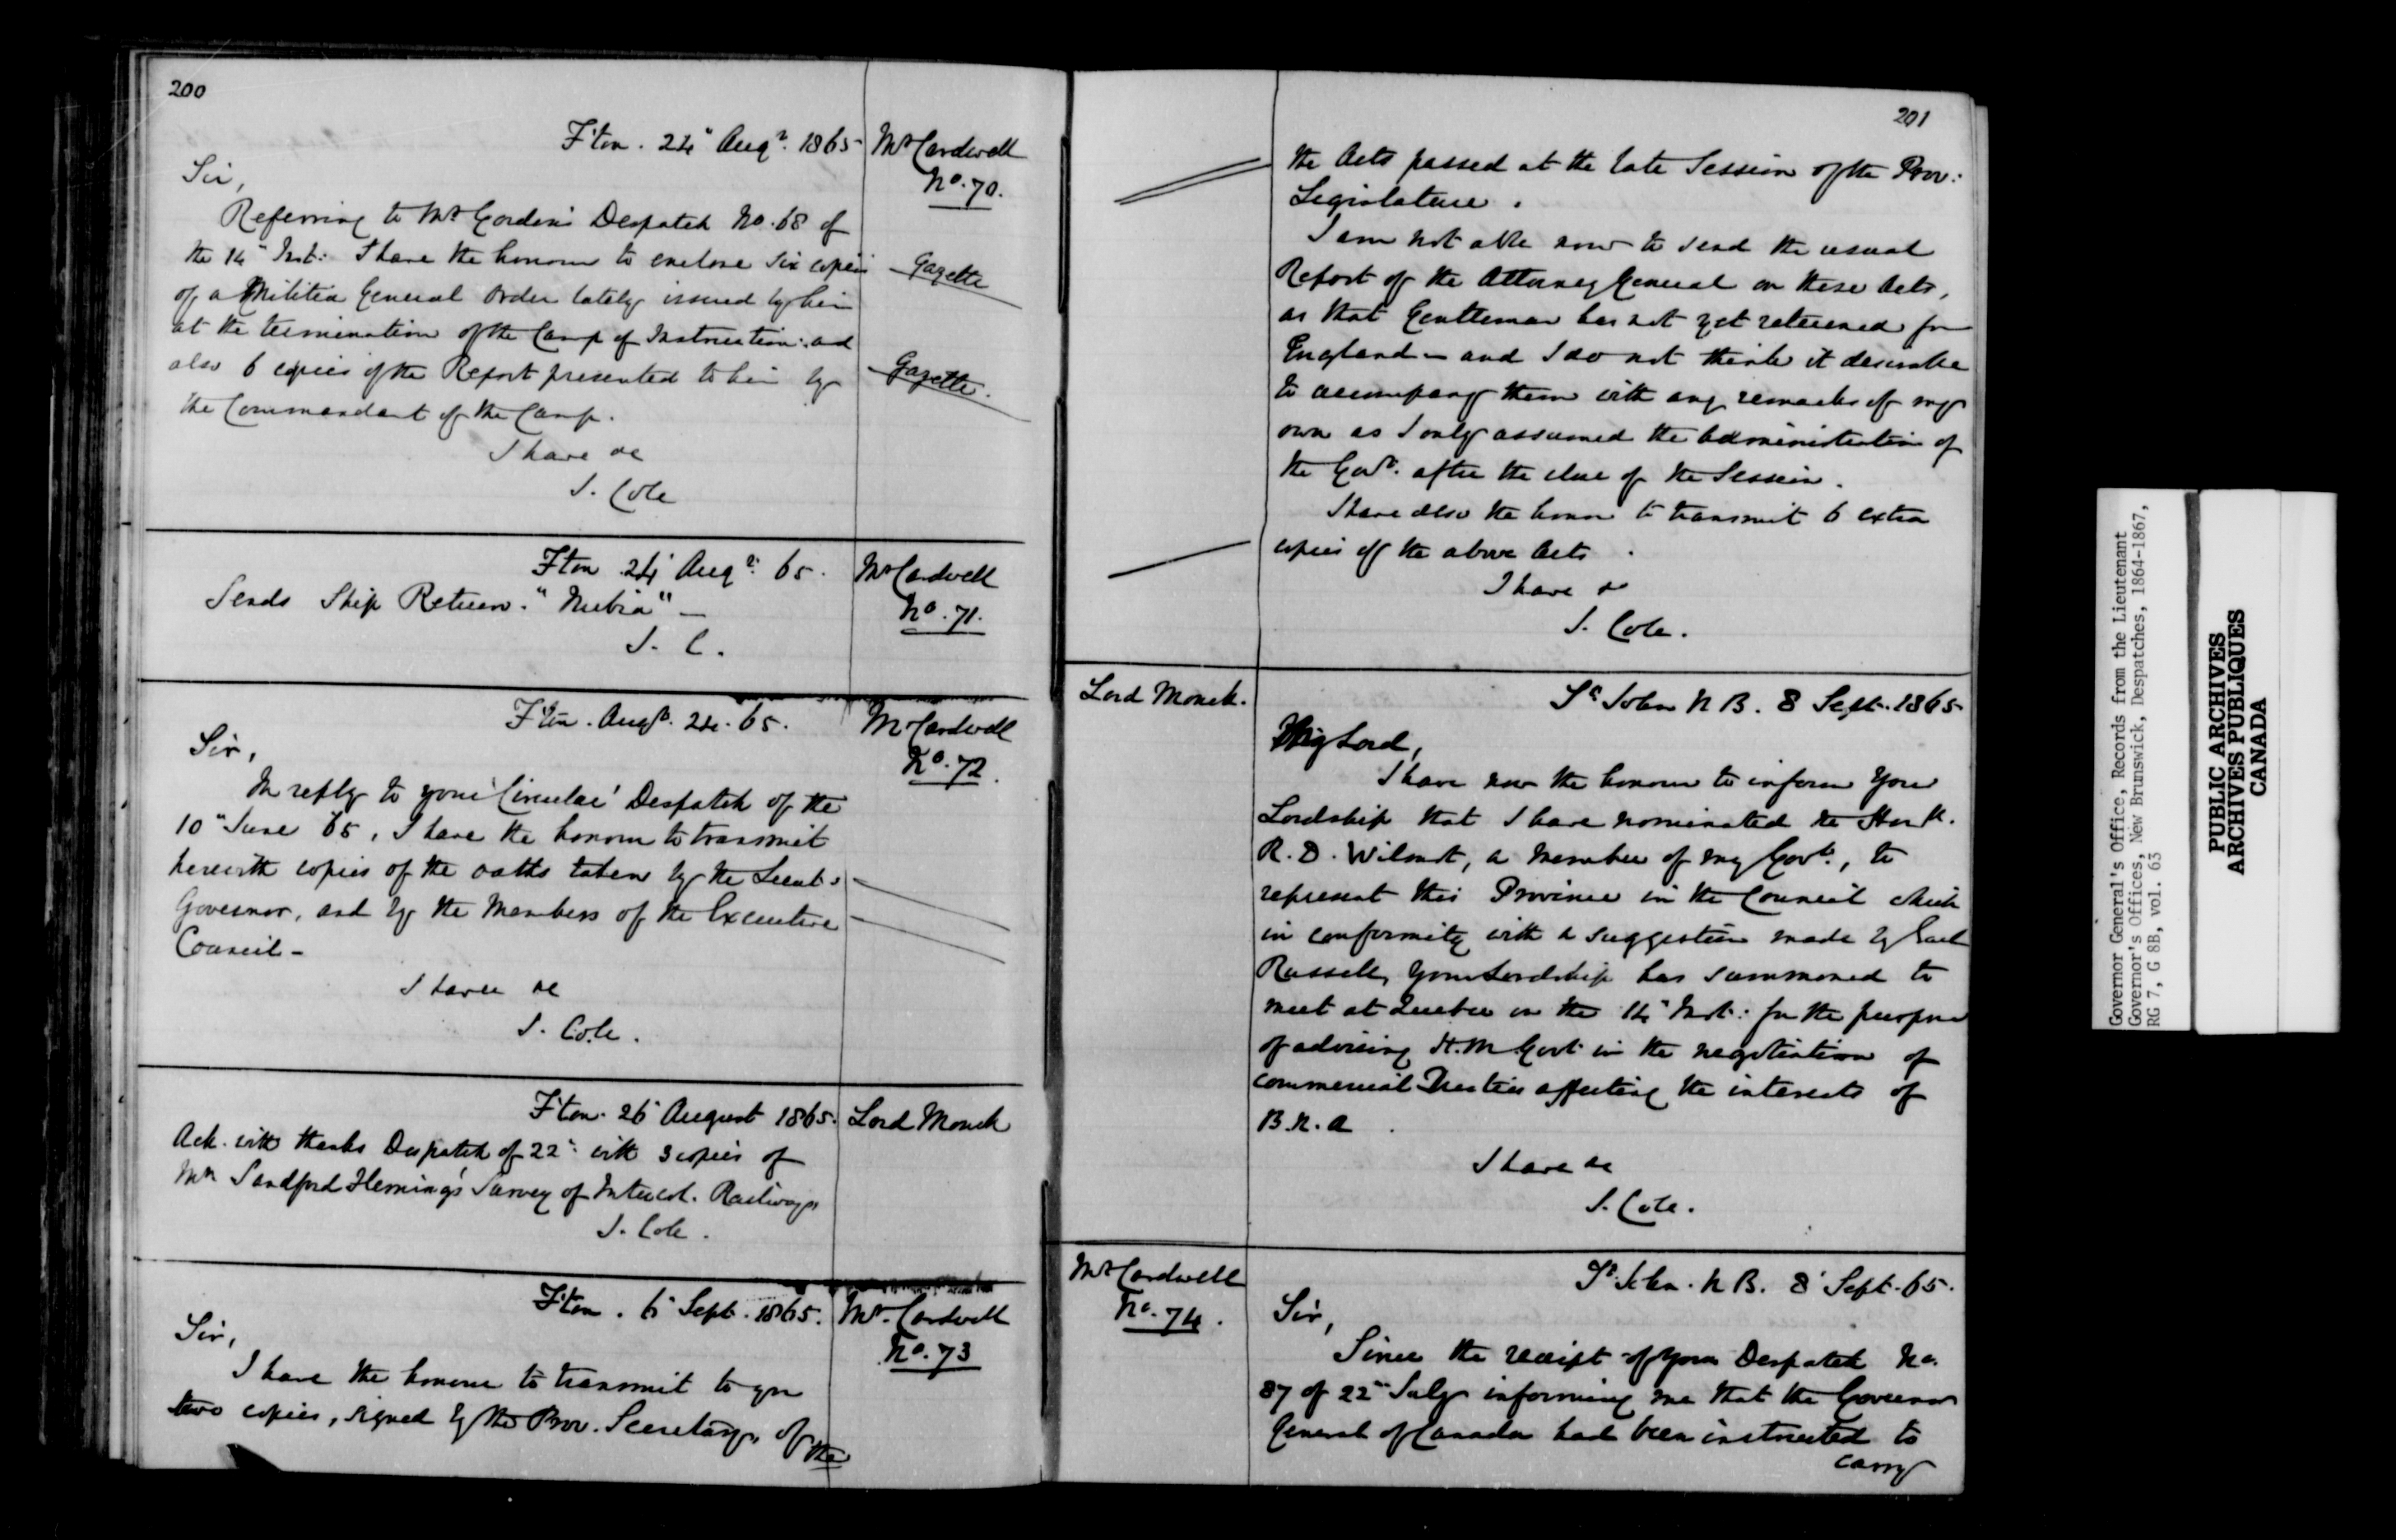 200
F'ton. 24" Augt. 1865
Mr Cardwell
No. 70.
Sir,
Referring to Mr Gordon's Despatch No. 68 of
the 14" Inst: I have the honour to enclose six copies
Gazette
of a Militia General Order lately issued by him
at the termination of the Camp of Instruction: and
also 6 copies of the Report presented to him by
Gazette.
the Commandant of the Camp.
I have &c
J. Cole
F'ton 24" Augt. 65.
Mr Cardwell
No. 71.
Sends Ship Return. "Nubia" —
J. C.
F'ton. Augt. 24. 65.
Mr Cardwell
No. 72.
Sir,
In reply to your 'Circular' Despatch of the
10" June 65, I have the honour to transmit
herewith copies of the oaths taken by the Lieut.
Governor, and by the Members of the Executive
Council —
I have &c
J. Cole.
F'ton. 26 August 1865.
Lord Monck
Ack. with thanks Despatch of 22" with 3 copies of
Mr Sandford Fleming's Survey of Intercol. Railway.
J. Cole.
F'ton. 6" Sept. 1865.
Mr. Cardwell
No. 73
Sir,
I have the honour to transmit to you
two copies, signed by the Prov. Secretary, of the
201
the Acts passed at the late Session of the Prov:
Legislature.
I am not able now to send the usual
Report of the Attorney General on these Acts,
as that Gentleman has not yet returned from
England — and I do not think it desirable
to accompany them with any remarks of my
own as I only assumed the Administration of
the Govt. after the close of the Session.
I have also the honor to transmit 6 extra
copies of the above Acts.
I have &c
J. Cole.
Lord Monck.
St John N B. 8 Sept. 1865
My Lord,
I have now the honour to inform Your
Lordship that I have nominated the Honble.
R. D. Wilmot, a member of my Govt., to
represent this Province in the Council which
in conformity with a suggestion made by Earl
Russell, Your Lordship has summoned to
meet at Quebec on the 14" Inst: for the purpose
of advising H. M Govt in the negotiation of
commercial Treaties affecting the interests of
B. N. A.
I have &c
J. Cole.
Mr Cardwell
No. 74.
St. John. N B. 8' Sept. 65.
Sir,
Since the receipt of your Despatch No.
87 of 22" July informing me that the Governor
General of Canada had been instructed to
carry
Governor General's Office, Records from the Lieutenant
Governor's Offices, New Brunswick, Despatches, 1864-1867,
RG 7, G 8B, vol. 63
PUBLIC ARCHIVES
ARCHIVES PUBLIQUES
CANADA